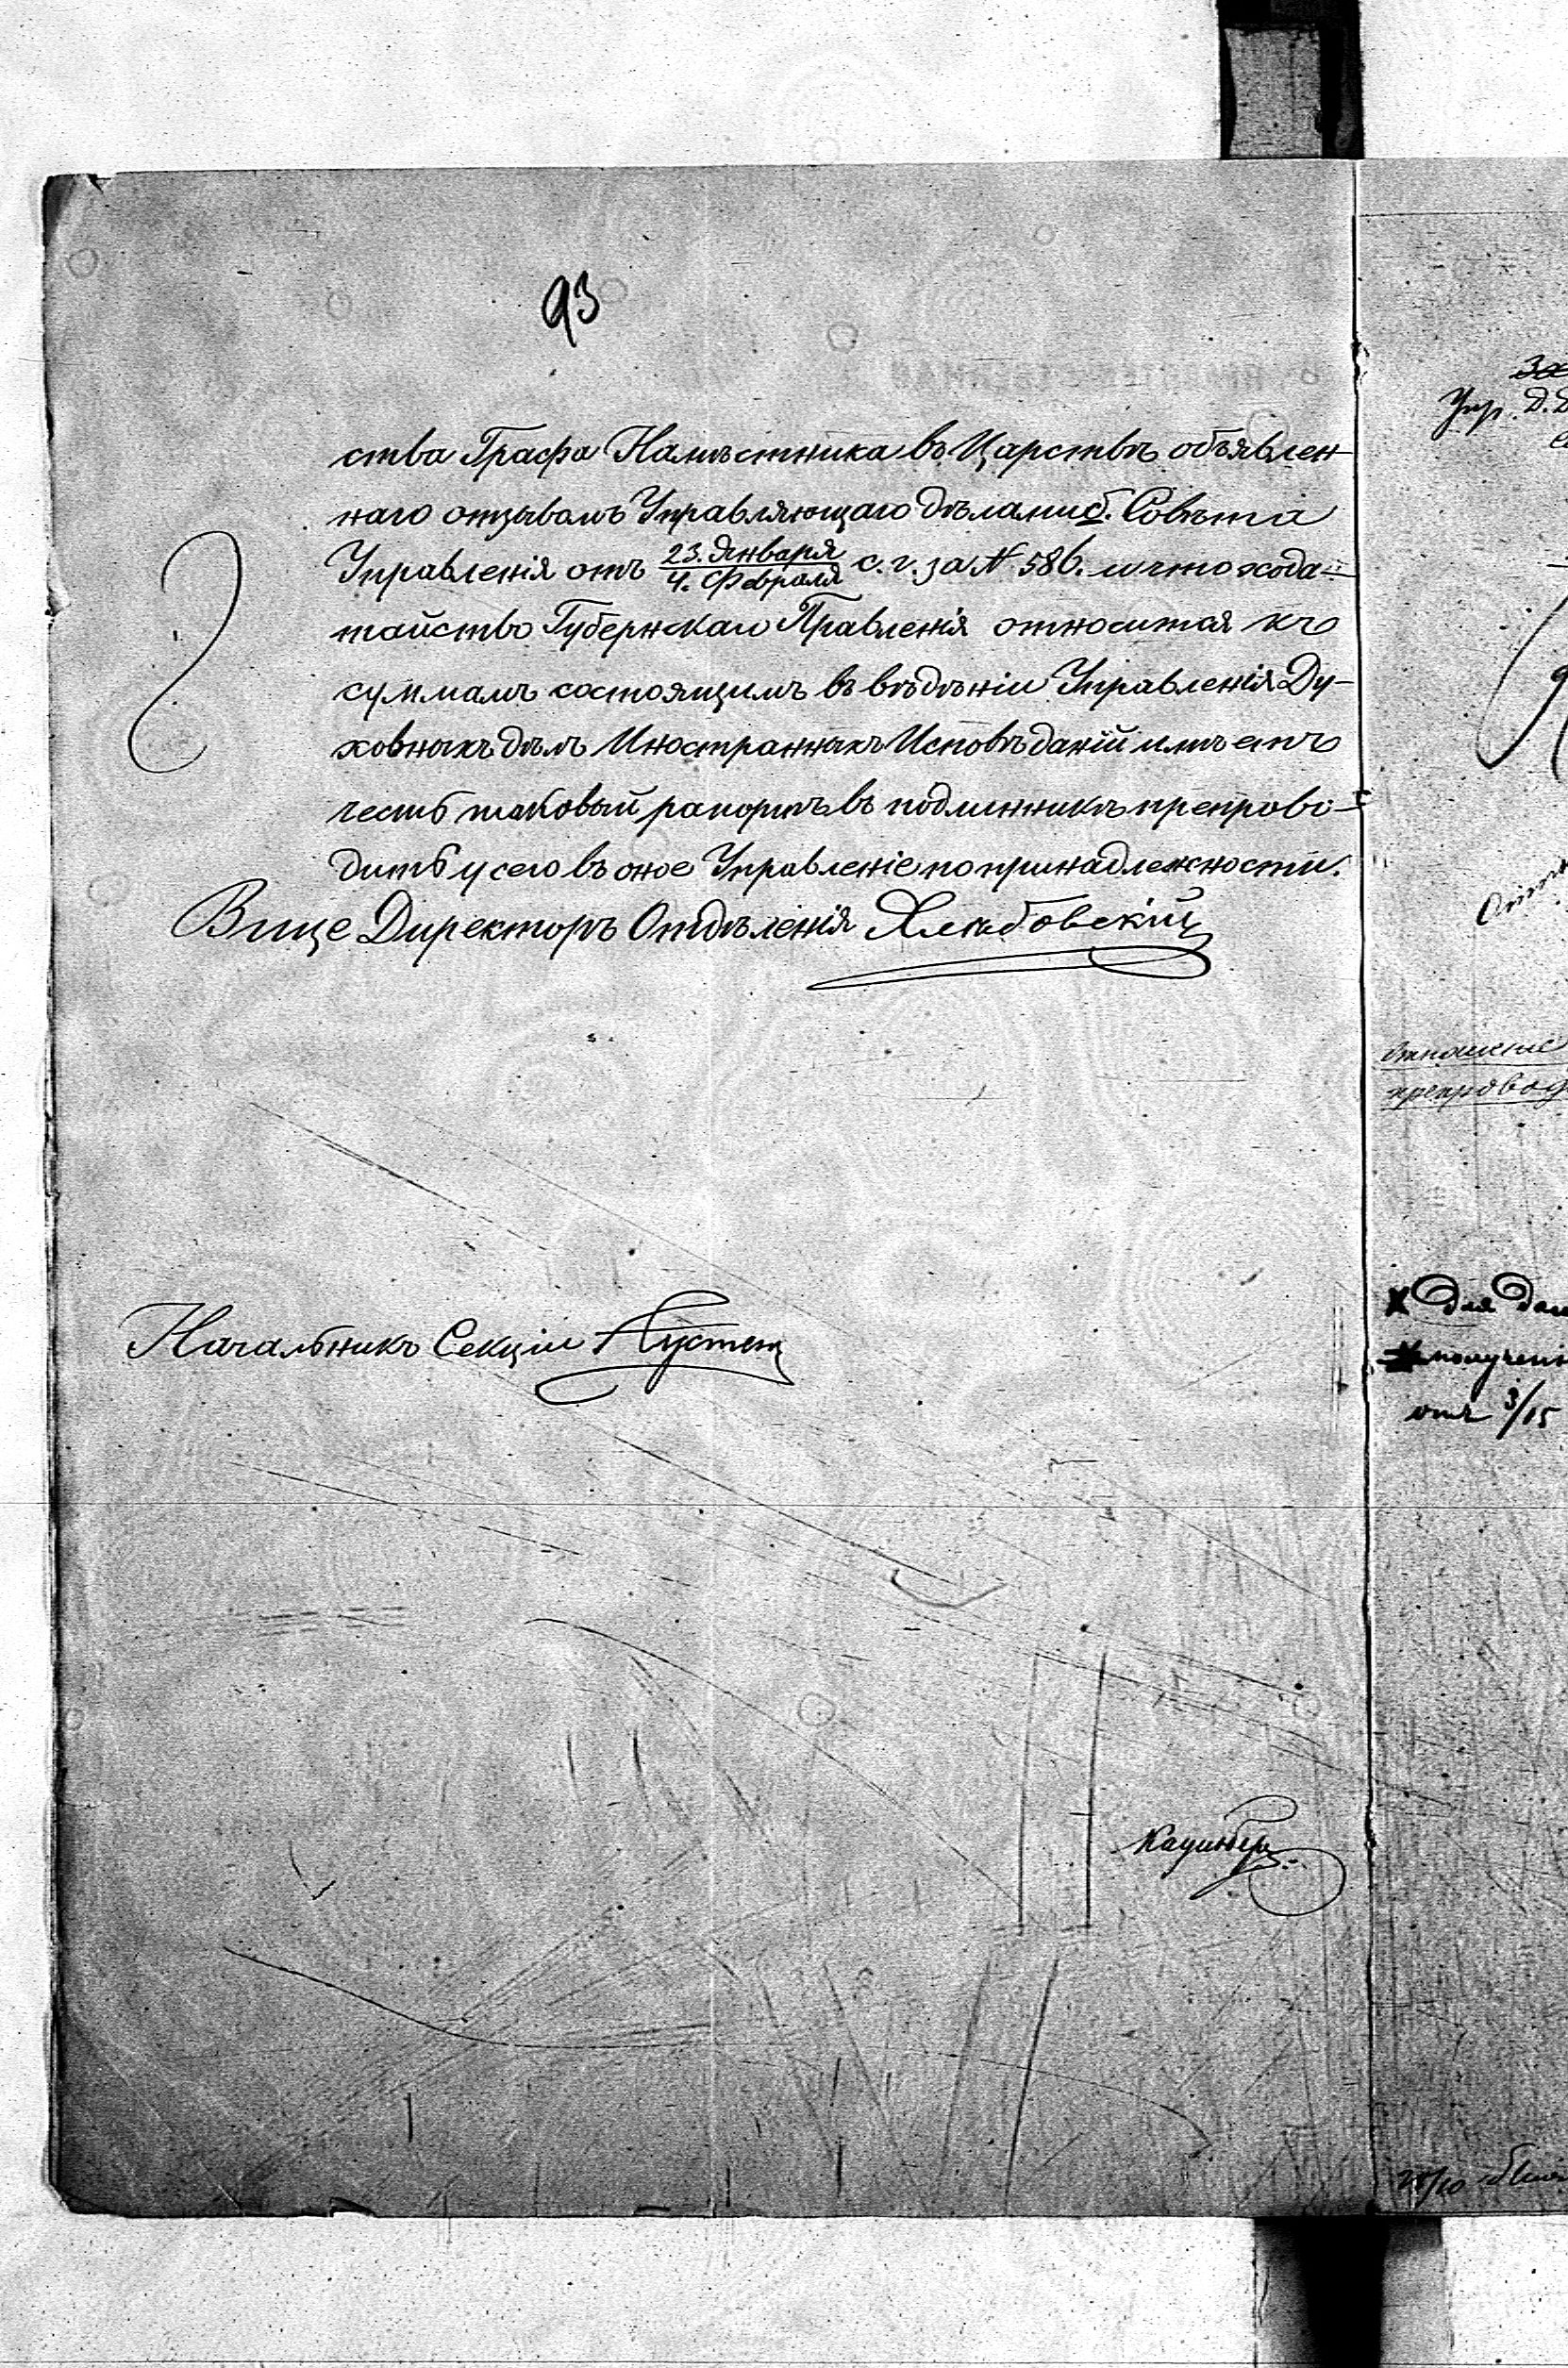 93
ства Графа Намѣстника въ Царствѣ объявлен
наго отзывомъ Управляющаго дѣлами б. Совѣта
Управленія отъ 23. Января / 4. Февраля с. г. за № 586. и что хода-
тайство Губернскаго Правленія относится къ
суммамъ состоящимъ въ вѣдѣніи Управленія Ду-
ховныхъ дѣлъ Иностранныхъ Исповѣданій имѣетъ
честь таковый рапортъ въ подлинникѣ препрово-
дить у сего въ оное Управленіе по принадлежности.
Вице Директоръ Отдѣленія
Начальникъ Секціи
Упр. Д. Д
отношеніе
препровод
для
получені
отъ 3/15